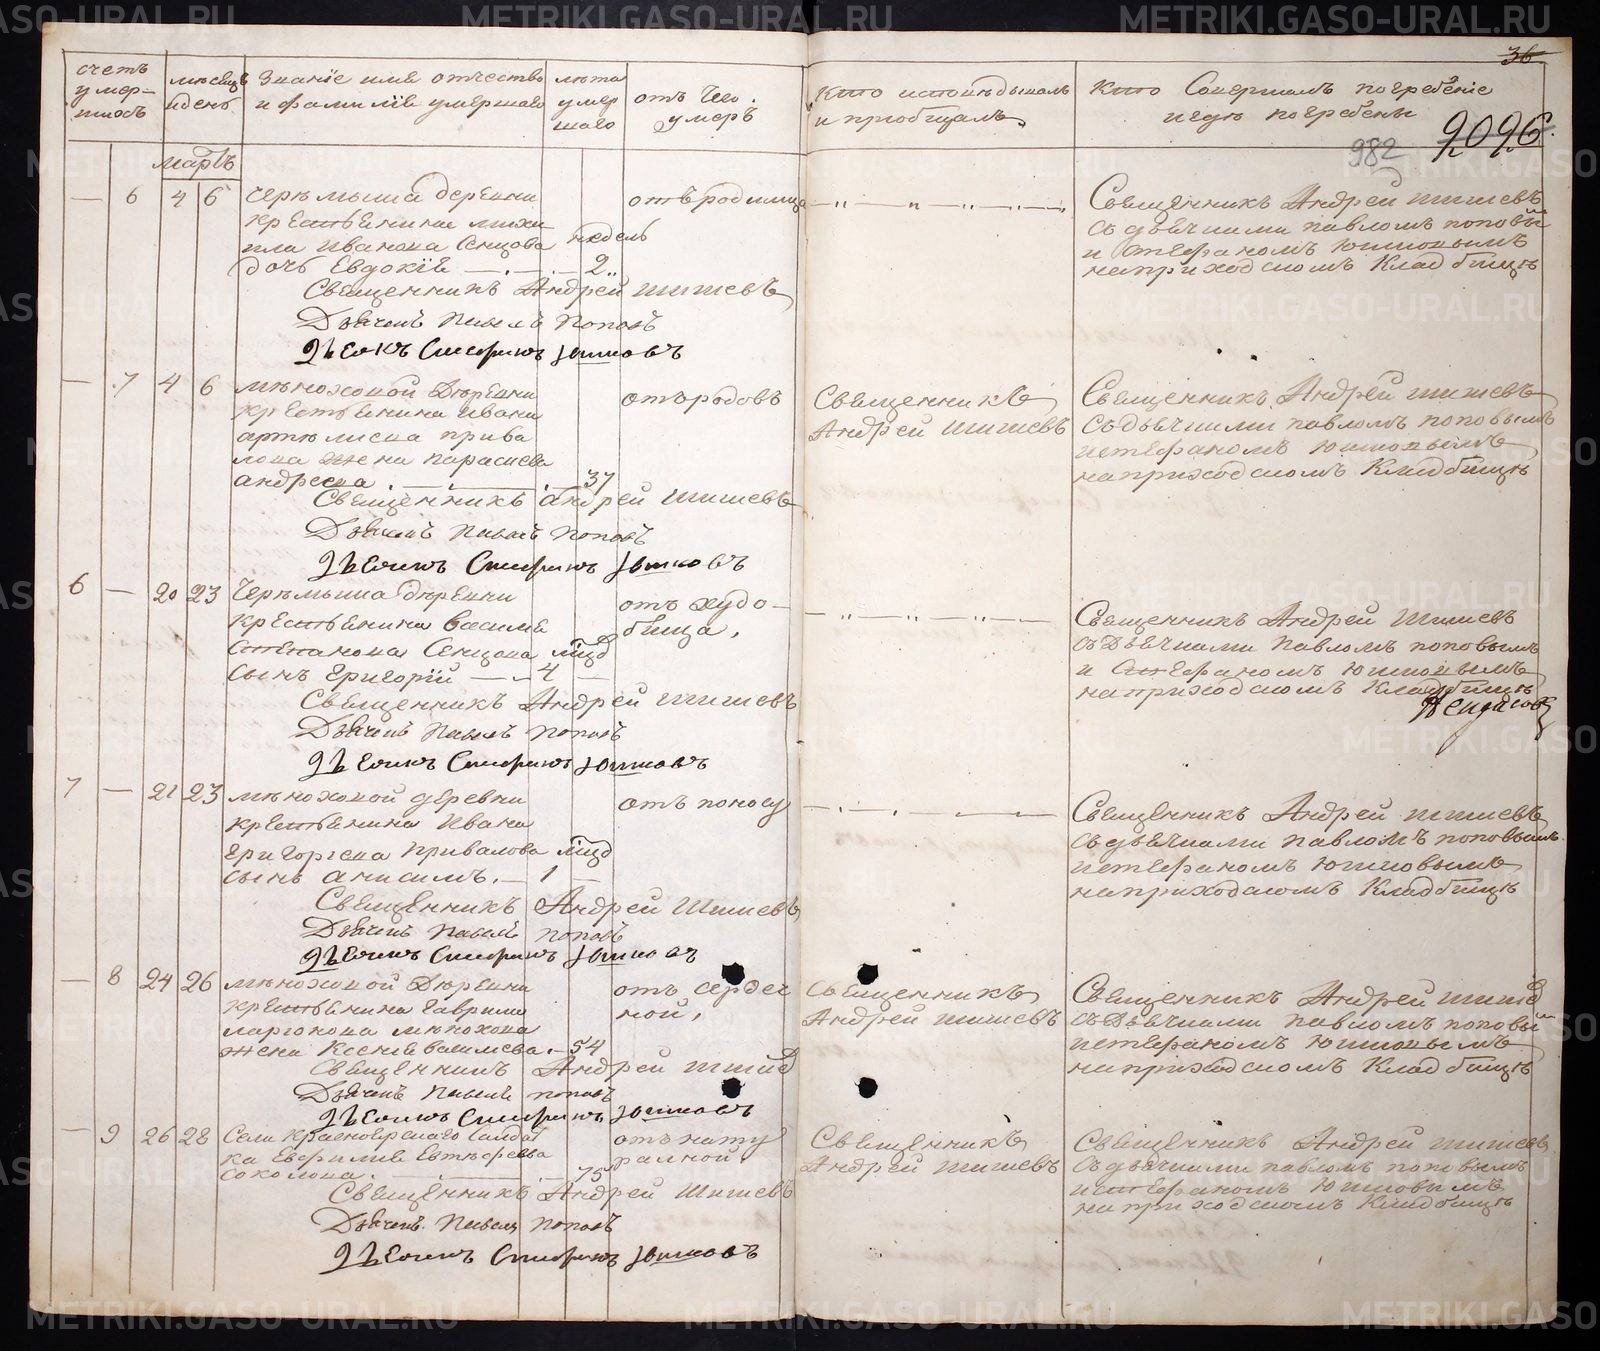 METRIKI.GASO-URAL.RU
счетъ умер-шихъ
мѣсецъ и день
Званіе имя отчество и фамиліе умершаго
лѣта умер шаго
отъ чего умеръ
Кто исповѣдывалъ и приобщалъ
Кто Совершалъ погребеніе и гдѣ погребены
36
982
9096.
мартъ
— 6 4 6
Черемыша деревни
крестьянина Михаи
ила Иванова Сенцова недель
дочь Евдокія — . — . — 2 „
отъ родимца
— „ — „ — „ — „ —
Священникъ Андрей Шишевъ
съ дьячками павломъ поповы
и стефаномъ Юшковымъ
на приходскомъ Кладбищѣ
Священникъ Андрей Шишевъ
Дьячекъ Павелъ Поповъ
Дьячекъ Стефанъ Юшковъ
— 7 4 6
Мѣноховой Деревни
крестьянина Ивана
артемиева прива
лова жена параскева
андреева . — . — . 37
отъ родовъ
Священникъ
Андрей Шишевъ
Священникъ Андрей Шишевъ
съ дьячками павломъ поповымъ
и стефаномъ Юшковымъ
на приходскомъ Кладбищѣ
Священникъ Андрей Шишевъ
Дьячекъ Павелъ Поповъ
Дьячекъ Стефанъ Юшковъ
6 — 20 23
Черемыша деревни
крестьянина Василия
Степанова Сенцова мѣцъ
сынъ Григорій — — 4 —
отъ худо-
бища,
— „ — „ — „ — —
Священникъ Андрей Шишевъ
съ Дьячками Павломъ поповымъ
и Стефаномъ Юшковымъ
на приходскомъ Кладбищѣ
Священникъ Андрей Шишевъ
Дьячекъ Павелъ Поповъ
Дьячекъ Стефанъ Юшковъ
7 — 21 23
Мѣноховой деревни
крестьянина Ивана
Григорьева Привалова мѣцъ
сынъ анисимъ. — 1 —
отъ поносу
Священникъ Андрей Шишевъ
съ дьячками павломъ поповымъ
и стефаномъ Юшковымъ
на приходскомъ Кладбищѣ
Священникъ Андрей Шишевъ
Дьячекъ Павелъ Поповъ
Дьячекъ Стефанъ Юшковъ
— 8 24 26
Мѣноховой Деревни
крестьянина Гаврила
ларионова мѣнохова
жена Ксения василиева. — 54
отъ сердеч
ной,
Священникъ
Андрей Шишевъ
Священникъ Андрей Шишев
съ Дьячками павломъ поповы
и стефаномъ Юшковымъ
на приходскомъ Кладбищѣ
Священникъ Андрей Шишев
Дьячекъ Павелъ Поповъ
Дьячекъ Стефанъ Юшковъ
— 9 26 28
Села Красноярскаго Салдат
ка Евфимия Евтефеева
Соколова . — . — 75
отъ нату
ралной
Священникъ
Андрей Шишевъ
Священникъ Андрей Шишевъ
съ дьячками павломъ поповымъ
и стефаномъ Юшковымъ
на приходскомъ Кладбищѣ
Священникъ Андрей Шишевъ
Дьячекъ Павелъ Поповъ
Дьячекъ Стефанъ Юшковъ